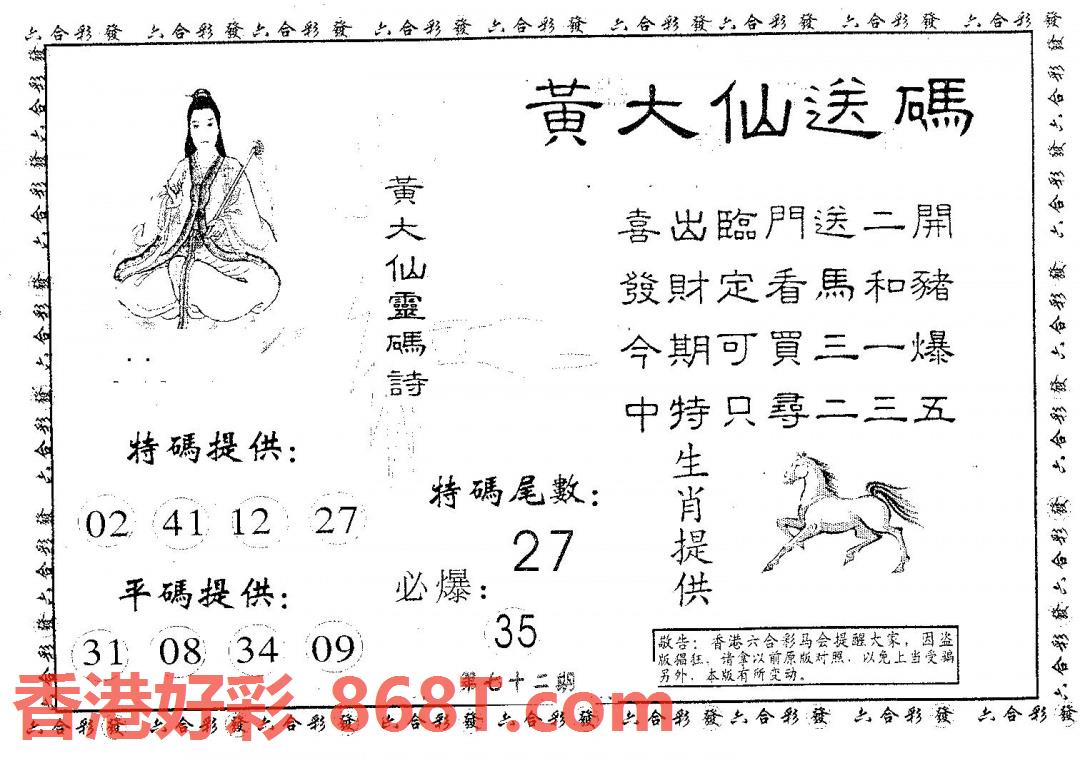 六合彩發 六合彩發六合彩發 六合彩發 六合彩發 六合彩發六合彩發 六合彩發 六合彩發
黃大仙送碼
黃大仙靈碼詩
喜出臨門送二開
發財定看馬和豬
今期可買三一爆
中特只尋二三五
特碼提供：
02 41 12 27
平碼提供：
31 08 34 09
特碼尾數：
27
必爆：
35
生肖提供
敬告：香港六合彩马会提醒大家，因盗
版猖狂，请拿以前原版对照，以免上当受骗
另外，本版有所变动。
第七十二期
香港好彩 868T.com
六合彩發 六合彩發 六合彩發 六合彩發 六合彩發 六合彩發六合彩發 六合彩發 六合彩發